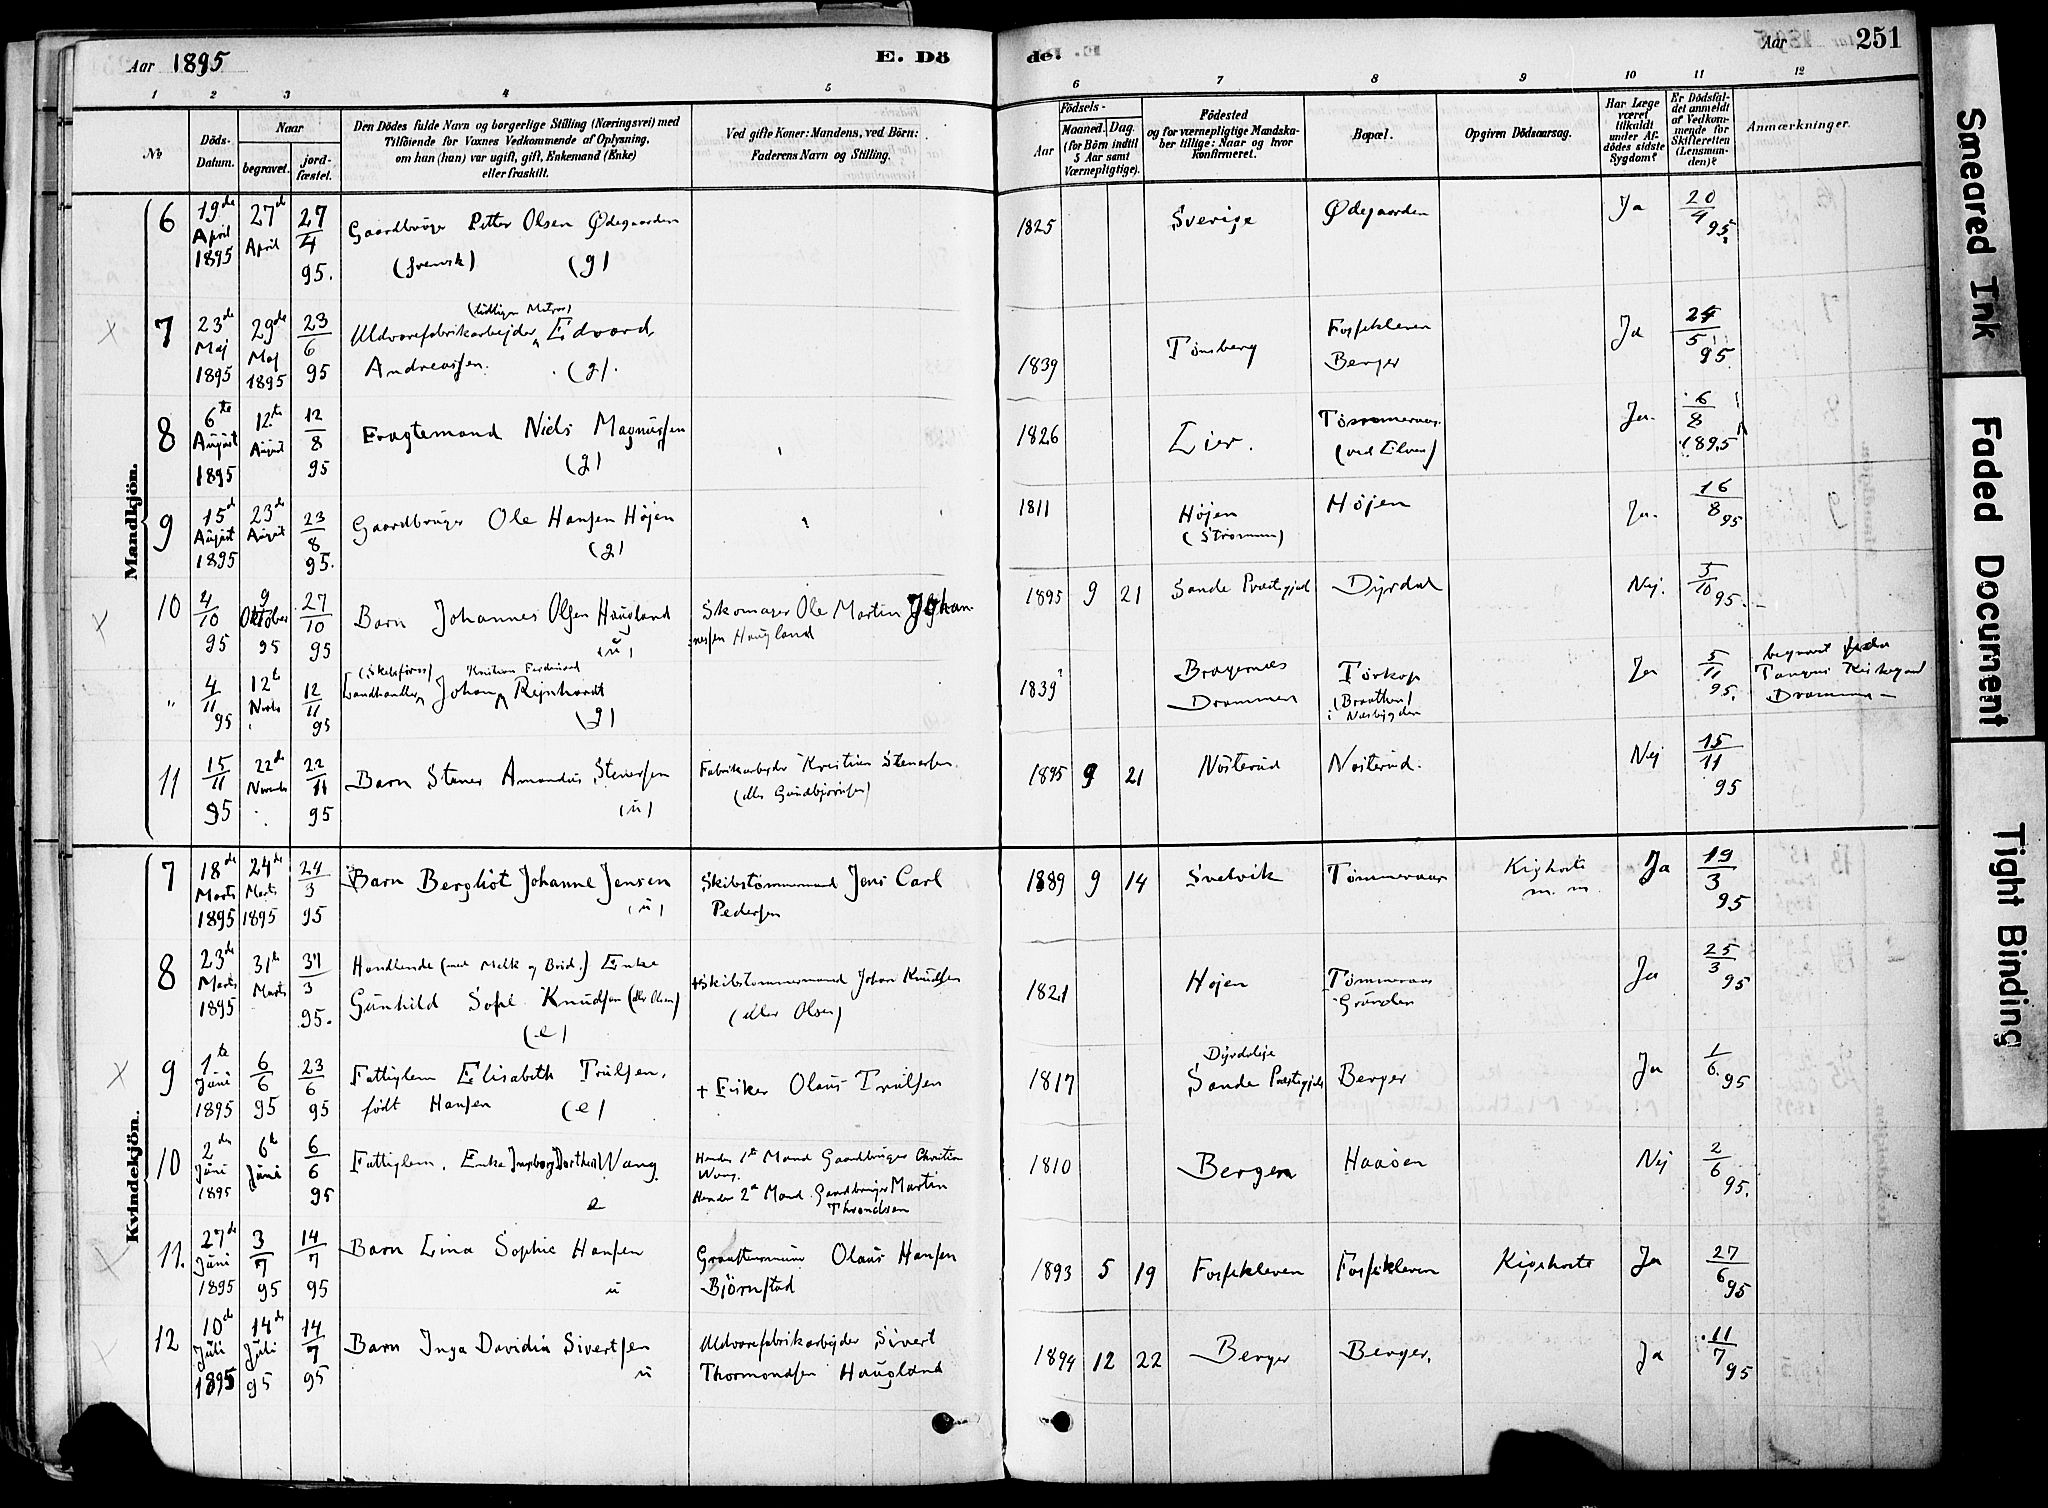 Aar 1895
E. Dö
de.
Aar
251
1 2 3 4 5
6 7 8 9 10 11 12
No
Döds-Datum.
Naar
begravet.
jord-fæstet.
Den Dödes fulde Navn og borgerlige Stilling (Næringsvei) med
Tilföiende for Voxnes Vedkommende af Oplysning,
om han (hun) var ugift, gift, Enkemand (Enke)
eller fraskilt.
Ved gifte Koner: Mandens, ved Börn:
Faderens Navn og Stilling.
Födsels-
Aar
Maaned. Dag.
(for Börn indtil
5 Aar samt
Værnepligtige).
Födested
og for værnepligtige Mandska-
ber tillige: Naar og hvor
konfirmeret.
Bopæl.
Opgiven Dödsaarsag.
Har Læge
været
tilkaldt
under Af-
dödes sidste
Sygdom?
Er Dödsfal-
det anmeldt
af Vedkom-
mende for
Skifteretten
(Lensman-
den)?
Anmærkninger.
Mandkjön.
6 19de April 1895 27d April 27/4 95. Gaardbruger Petter Olsen Ødegaarden (svensk) (g) 1825 Sverige Ødegaarden Ja 20/4 95
7 23de Maj 1895 29de Maj 1895 23/6 95 Uldvarefabrikarbejder (tidligere Matros) Edvard Andreassen. (g). 1839 Tønsberg Fossekleven Berger Ja 24/5 95
8 6te August 1895 12te August 12/8 95 Fragtemand Niels Magnussen (g) 1826 Lier. Tømmeraas (ved Elven) Ja. 6/8 1895
9 15d August 1895 23de August 23/8 95. Gaardbruger Ole Hansen Højen (g) 1811 Højen (Strømmen) Højen Ja. 16/8 95
10 4/10 95 9 Oktober 95 27/10 95 Barn Johannes Olsen Haugland (u) Skomager Ole Martin Johannessen Haugland 1895 9 21 Sande Præstegjeld Dyrdal Nej. 5/10 95.
" 4/11 95 12te Novbr 12/11 95 Landhandler (Skibsfører) Johan Kristian Ferdinand Reinhardt (g) 1839 Bragernes Drammen Tørkop (Braathen) i Nesbygden Ja 5/11 95. begravet Tangens Kirkegaard Drammen
11 15/11 95 22de Novembr 22/11 95 Barn Stener Amandus Stenersen (u) Fabrikarbejder Kristian Stenersen. (eller Gundbjørnsen) 1895 9 21 Nøsterud Nøsterud. Nej 15/11 95
Kvindekjön.
7 18de Marts 1895 24de Marts 1895 24/3 95 Barn Bergliot Johanne Jensen (u) Skibstømmermand Jens Carl Pedersen 1889 9 14 Svelvik Tømmeraas Kighoste m. m. Ja 19/3 95
8 23de Marts 1895 31te Marts 31/3 95. Handlende (med Melk og Brød.) Enke Gunhild Sofie Knudsen (eller Olsen) (e) + Skibstømmermand Johan Knudsen (eller Olsen) 1821 Højen Tømmeraas Grunden Ja 25/3 95
9 1te Juni 1895 6/6 95 23/6 95 Fattiglem Elisabeth Trulsen, født Hansen (e) + Fisker Olaus Trulsen 1817 Dyrdalseje Sande Præstegjeld Berger Ja 1/6. 95
10 2den Juni 1895 6te Juni 6/6 95 Fattiglem. Enke Ingeborg Dorthea Wang. e Hendes 1te Mand Gaardbruger Christian Wang. Hendes 2d Mand. Gaardbruger Martin Throndsen 1810 Bergen Haaøen Nej 2/6 95.
11. 27de Juni 1895 3/7 95 14/7 95 Barn Lina Sophie Hansen u Graastensmurer Olaus Hansen Bjørnstad 1893 5 19 Fossekleven Fossekleven Kighoste Ja 27/6 95
12 10de Juli 1895 14de Juli 95 14/7 95 Barn Inga Davidia Sivertsen u Uldvarefabrikarbejder Sivert Thormondsen Haugland 1894 12 22 Berger Berger. Ja 11/7 95
Smeared Ink
Faded Document
Tight Binding